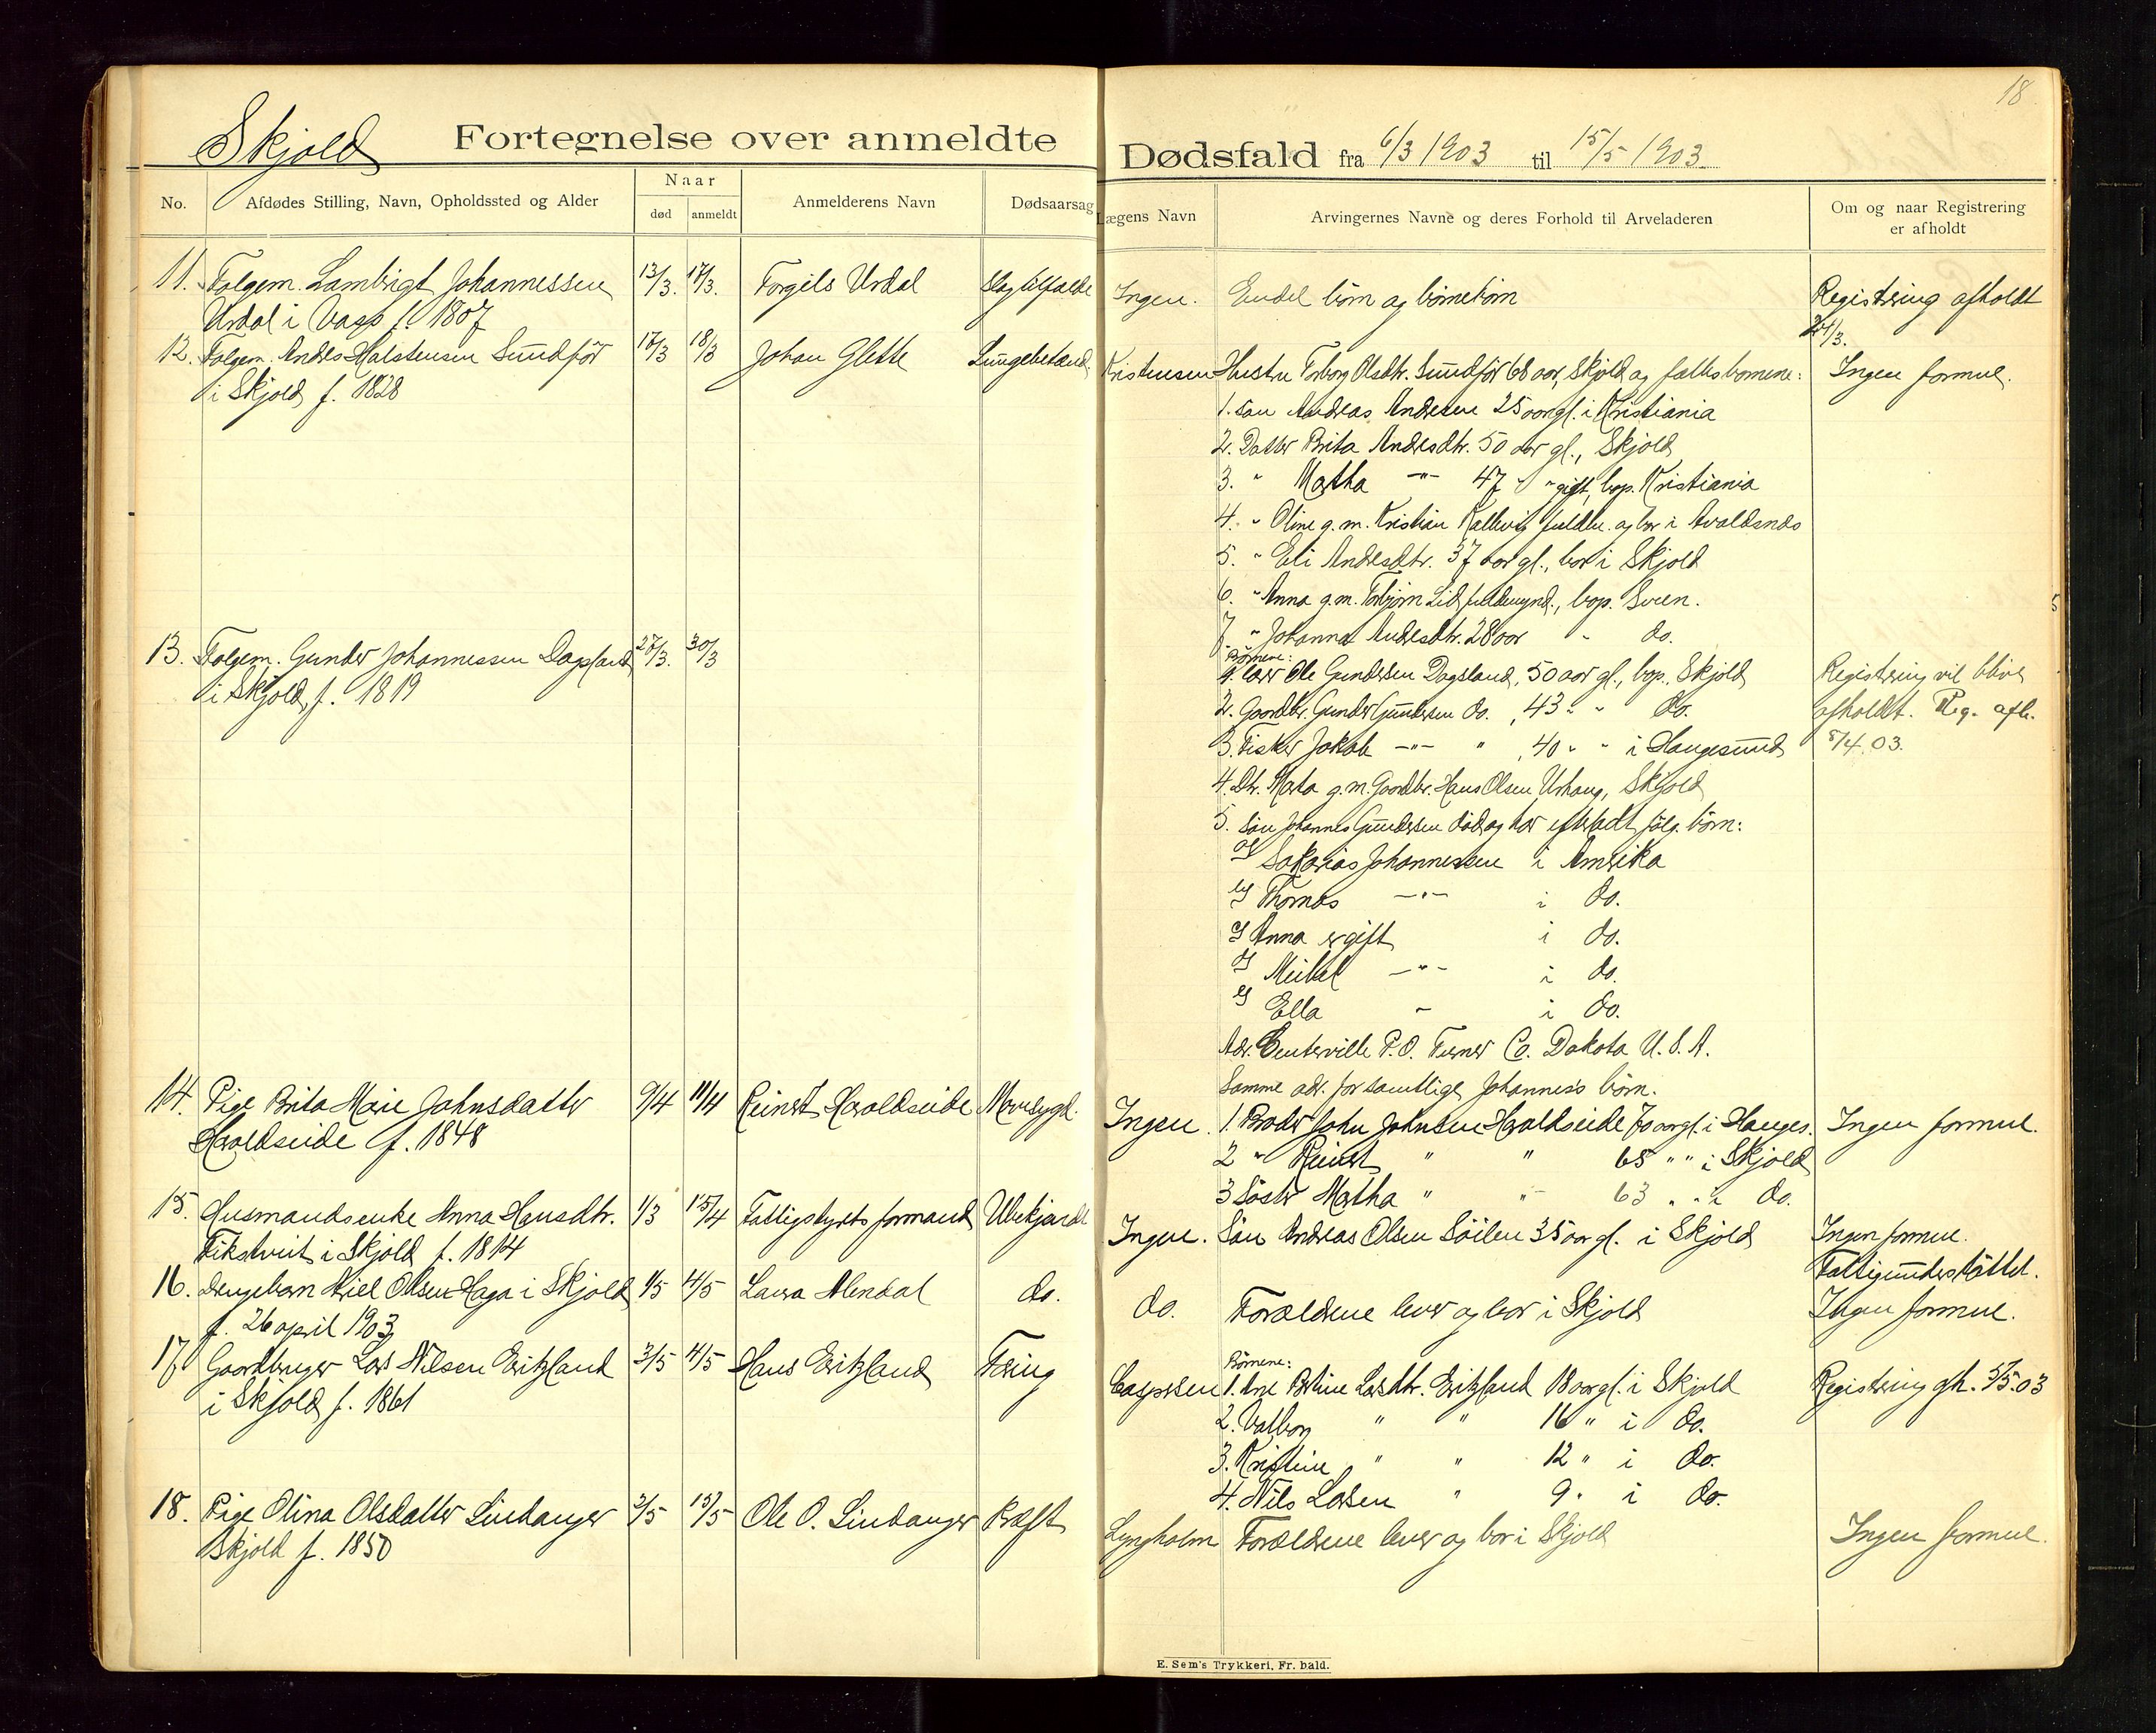 18
Skjold Fortegnelse over anmeldte Dødsfald fra 6/3 1903 til 15/5 1903
No. Afdødes Stilling, Navn, Opholdssted og Alder Naar død anmeldt Anmelderens Navn Dødsaarsag Lægens Navn Arvingernes Navne og deres Forhold til Arveladeren Om og naar Registrering er afholdt
11. Folgem. Lambrigt Johannessen 13/3. 17/3. Torgils Urdal Slagtilfælde Ingen. Endel börn og börnebörn Registrering afholdt
Urdal i Vats f. 1807 24/3.
12. Folgem. Andres Halstensen Sundför 17/3 18/3 Johan Glette Lungebetænd. Kristensen Hustru Torborg Olsdtr. Sundför 68 aar, Skjold og fælles börnene: Ingen formue.
i Skjold f. 1828
1. Sön Andreas Andresen 25 aar gl. i Kristiania
2. Datter Brita Andresdtr. 50 aar gl., Skjold
3. " Martha -"- 47 " " gift, bop. Kristiania
4. " Oline g.m. Kristian Kallevig fuldm. og bor i Avaldsnes
5. " Eli Andresdtr. 37 aar gl., bor i Skjold
6. " Anna g.m. Torbjörn Lid fuldmynd., bop. Sveen.
7. " Johanna Andresdtr. 28 aar " do.
13. Folgem. Gunder Johannessen Dagsland 27/3. 30/3
i Skjold f. 1819
Börnene:
1. Ole Gundersen Dagsland, 50 aar gl., bop. Skjold Registrering vil blive
2. Gaardbr. Gunder Gundersen do. , 43 " " do. afholdt. Reg. afh.
3. Fisker Jakob -"- " , 40 " " i Haugesund 8/4.03.
4. Dtr. Marta g.m. Gaardbr. Hans Olsen Urhaug, Skjold
5. Sön Johannes Gundersen död og har efterladt fölg. börn:
a) Sakarias Johannessen i Amerika
b) Thomas -"- i do.
c) Anna er gift i do.
d) Mikal -"- i do.
e) Ella " i do.
Adr. Centerville P.O. Turner Co. Dakota U.S.A.
Samme adr. for samtlige Johannes's börn.
14. Pige Brita Marie Johnsdatter 9/4 11/4 Reinert Haraldseide Mavesygd. Ingen. 1. Broder John Johnsen Haraldseide 70 aar gl. i Hauges. Ingen formue.
Haraldseide f. 1848
2 " Reinert " " 65 " " i Skjold
3 Söster Martha " " 63 " " i do.
15. Husmandsenke Anna Hansdtr. 1/3 15/4 Fattigstyrets formand Ubekjendt Ingen. Sön Andreas Olsen Söilen 35 aar gl. i Skjold Ingen formue.
Fikstveit i Skjold f. 1814 Fattigunderstöttet.
16. Drengebarn Kiel Olsen Haga i Skjold 1/5 4/5 Laura Alendal do. do. Forældrene lever og bor i Skjold Ingen formue.
f. 26 april 1903
17 Gaardbruger Lars Nilsen Eritzland 3/5 4/5 Hans Eritzland Tæring Caspersen Registrering afh. 5/5.03
i Skjold f. 1861
Börnene:
1. Ane Bertine Larsdtr. Eritzland 18 aar gl. i Skjold
2. Valborg " " 16 " i do.
3. Kristine " " 12 " i do.
4. Nils Larsen " 9 " i do.
18. Pige Olina Olsdatter Lindanger 2/5 15/5 Ole O. Lindanger Kræft Lyngholm Forældrene lever og bor i Skjold Ingen formue.
Skjold f. 1850
E. Sem's Trykkeri, Fr. hald.